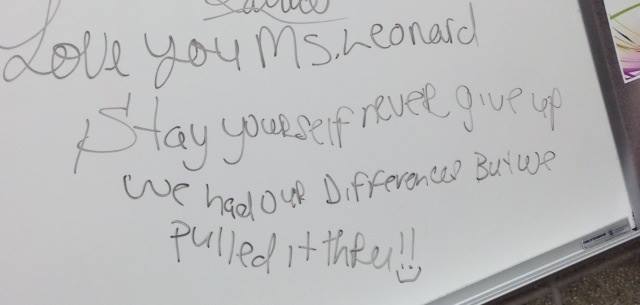 Love you Ms. Leonard
Stay yourself never give up
We had our Differences But we
pulled it thru!!